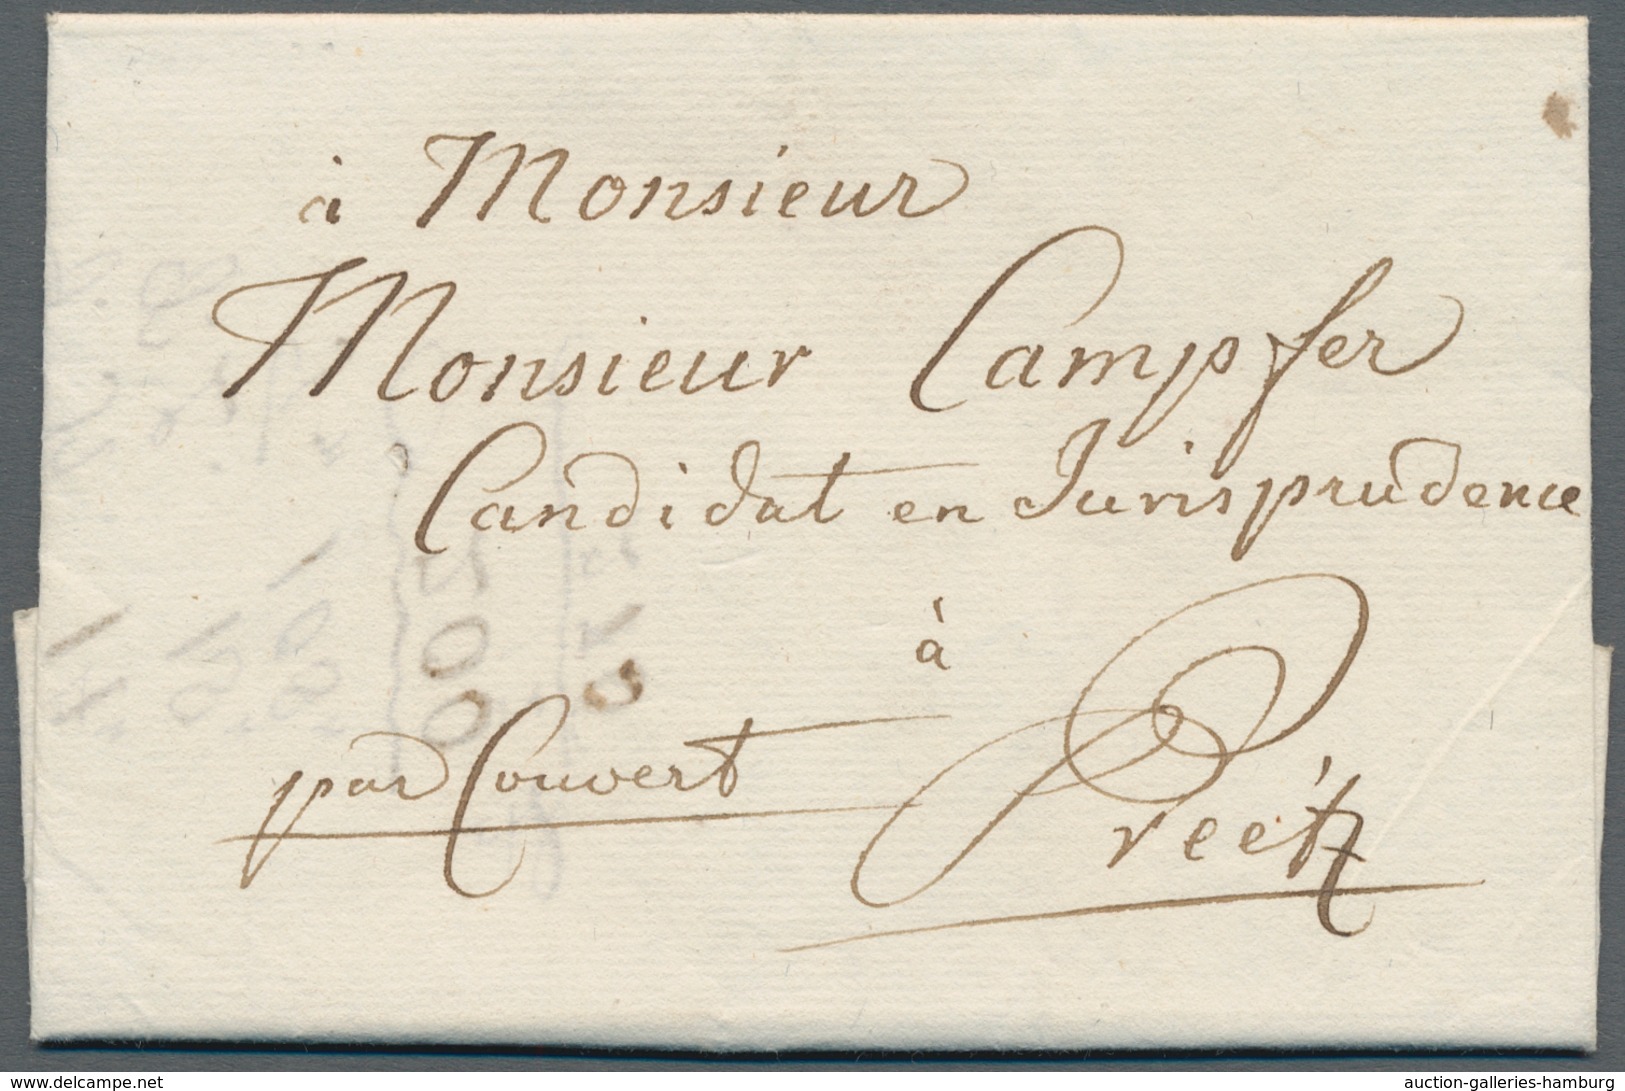 à Monsieur
Monsieur Campfer
Candidat en Jurisprudence
à
par Couvert
Preetz
www.delcampe.net
auction-galleries-hamburg